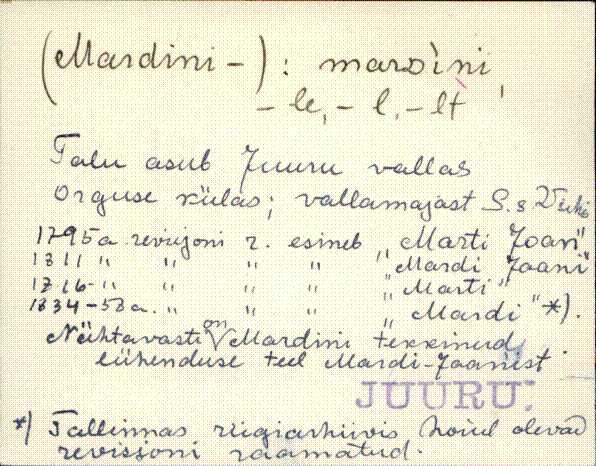 (Mardini-) : mardini,
-le, -l, -lt
Talu asub Juuru vallas
Orguse külas; vallamajast S. s
1795 a revisjoni r. esineb „Marti Joani"
1811 " " " " „Mardi Jaani"
1816- " " " " „Marti"
1834-58 a. " " " „Mardi" *).
Nähtavasti on Mardini tekkinud
lühenduse teel Mardi-Jaanist.
JUURU.
*) Tallinnas riigiarhiivis hoiul olevad
revisjoni raamatud.